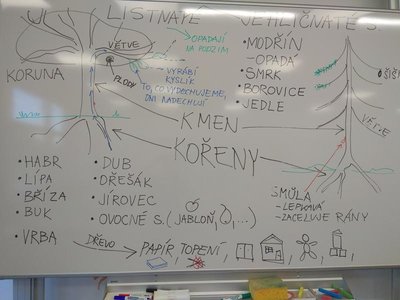 LISTNATÉ
JEHLIČNATÉ S.
OPADAJÍ
NA PODZIM
VĚTVE
• MODŘÍN
- OPADÁ
KORUNA
VYRÁBÍ
KYSLÍK
TO, CO VYDECHUJEME,
ONI NADECHUJÍ
• SMRK
• BOROVICE
• JEDLE
ŠIŠ
PLODY
KMEN
VĚTVE
KOŘENY
• HABR
• LÍPA
• BŘÍZA
• BUK
• VRBA
• DUB
• OŘEŠÁK
• JÍROVEC
• OVOCNÉ S. (JABLOŇ, , ...)
SMŮLA
- LEPKAVÁ
- ZACELUJE RÁNY
DŘEVO
PAPÍR, TOPENÍ,